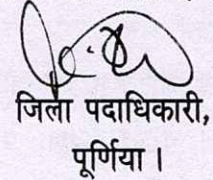 जिला पदाधिकारी,
पूर्णिया ।